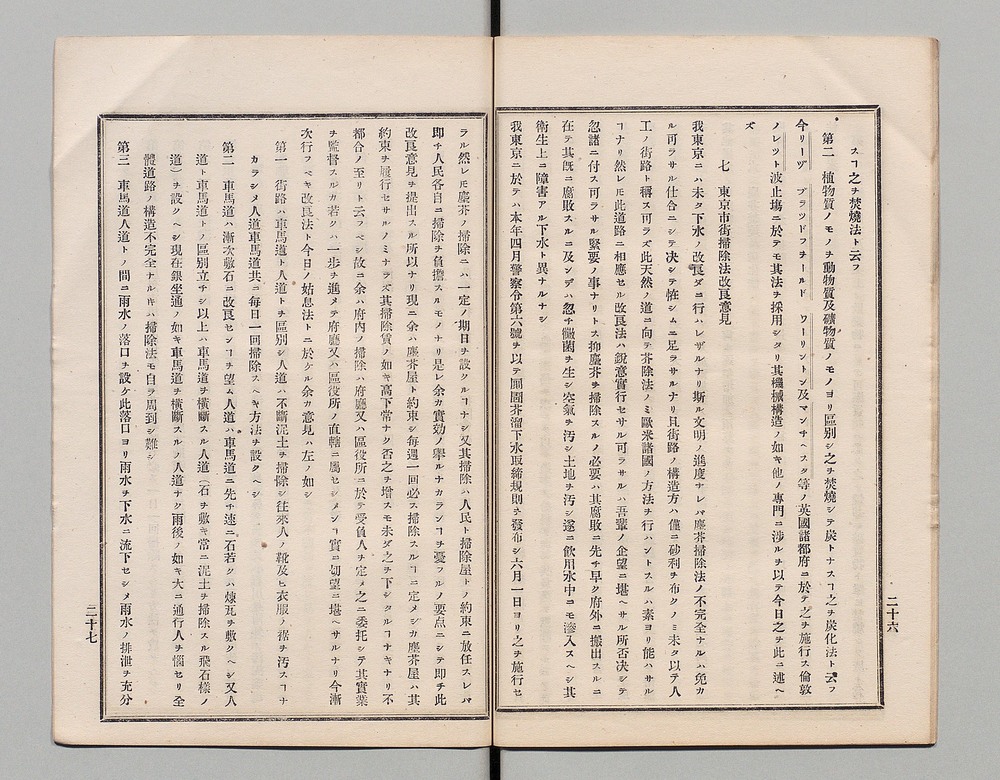 スヿ之ヲ焚燒法ト云フ
第二　植物質ノモノヲ動物質及礦物質ノモノヨリ區別シ之ヲ焚燒シテ炭トナスヿ之ヲ炭化法ト云フ
今リーヅ　ブラッドフ井ールド　ワーリントン及マンチヘスタ等ノ英國諸都府ニ於テ之ヲ施行ス倫敦
ノレット波止塲ニ於テモ其法ヲ採用シタリ其機械構造ノ如キ他ノ專門ニ渉ルヲ以テ今日之ヲ此ニ述ヘ
ズ
七　東京市街掃除法改良意見
我東京ニハ未タ下水ノ改良ダニ行ハレザルナリ斯ル文明ノ進度ナレバ塵芥掃除法ノ不完全ナルハ免カ
ル可ラサル仕合ニシテ决シテ恠シムニ足ラサルナリ且街路ノ構造方ハ僅ニ砂利ヲ布クノミ未タ以テ人
工ノ街路ト稱ス可ラズ此天然ノ道ニ向テ芥除法ノミ歐米諸國ノ方法ヲ行ハントスルハ素ヨリ能ハサル
ヿナリ然レ𪜈此道路ニ相應セル改良法ハ銳意實行セサル可ラサルハ吾輩ノ企望ニ堪ヘサル所否决シテ
忽諸ニ付ス可ラサル緊要ノ事ナリトス抑塵芥ヲ掃除スルノ必要ハ其腐敗ニ先チ早ク府外ニ搬出スルニ
在テ其旣ニ腐敗スルニ及ンデハ忽チ黴菌ヲ生シ空氣ヲ汚シ土地ヲ汚シ遂ニ飲用水中ニモ滲入スヘシ其
衛生上ニ障害アル下水ト異ナルナシ
我東京ニ於テハ本年四月警察令第六號ヲ以テ圊圂芥溜下水取締規則ヲ發布シ六月一日ヨリ之ヲ施行セ
二十六
ラル然レ𪜈塵芥ノ掃除ニハ一定ノ期日ヲ設クルヿナシ又其掃除ハ人民ト掃除屋トノ約束ニ放任スレバ
即チ人民各自ニ掃除ヲ負擔スルモノナリ是レ余カ實効ノ擧ルナカランヿヲ憂フルノ要点ニシテ即チ此
改良意見ヲ提出スル所以ナリ現ニ余ハ塵芥屋ト約束シ每週一回必ス掃除スルヿニ定メシカ塵芥屋ハ其
約束ヲ履行セサルノミナラズ其掃除賃ノ如キ高下常ナク否之ヲ增スモ未ダ之ヲ下シタルヿナキナリ不
都合ノ至リト云フベシ故ニ余ハ府内ノ掃除ハ府廳又ハ區役所ニ於テ受負人ヲ定メ之ニ委托シテ其實業
ヲ監督スルカ若クハ一步ヲ進メテ府廳又ハ區役所ノ直轄ニ屬セシメンヿ實ニ切望ニ堪ヘサルナリ今漸
次行フベキ改良法ト今日ノ姑息法トニ於ケル余カ意見ハ左ノ如シ
第一　街路ハ車馬道ト人道トヲ區別シ人道ハ不斷泥土ヲ掃除シ往來人ノ靴及ヒ衣服ノ裾ヲ汚スヿナ
カラシメ人道車馬道共ニ每日一回掃除スヘキ方法ヲ設クヘシ
第二　車馬道ハ漸次敷石ニ改良センヿヲ望ム人道ハ車馬道ニ先チ速ニ石若クハ煉瓦ヲ敷クヘシ又人
道ト車馬道トノ區別立チシ以上ハ車馬道ヲ橫斷スル人道（石ヲ敷キ常ニ泥土ヲ掃除スル飛石樣ノ
道）ヲ設クヘシ現在銀坐通ノ如キ車馬道ヲ橫斷スルノ人道ナク雨後ノ如キ大ニ通行人ヲ惱セリ全
體道路ノ構造不完全ナル𪜈ハ掃除法モ自ラ周到シ難シ
第三　車馬道人道トノ間ニ雨水ノ落口ヲ設ケ此落口ヨリ雨水ヲ下水ニ流下セシメ雨水ノ排泄ヲ充分
二十七